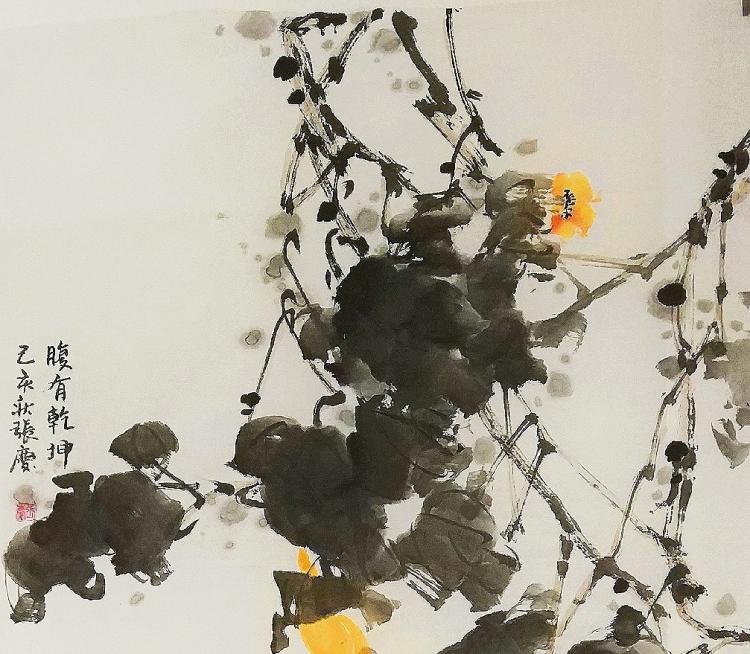 腹有乾坤
己亥秋張慶